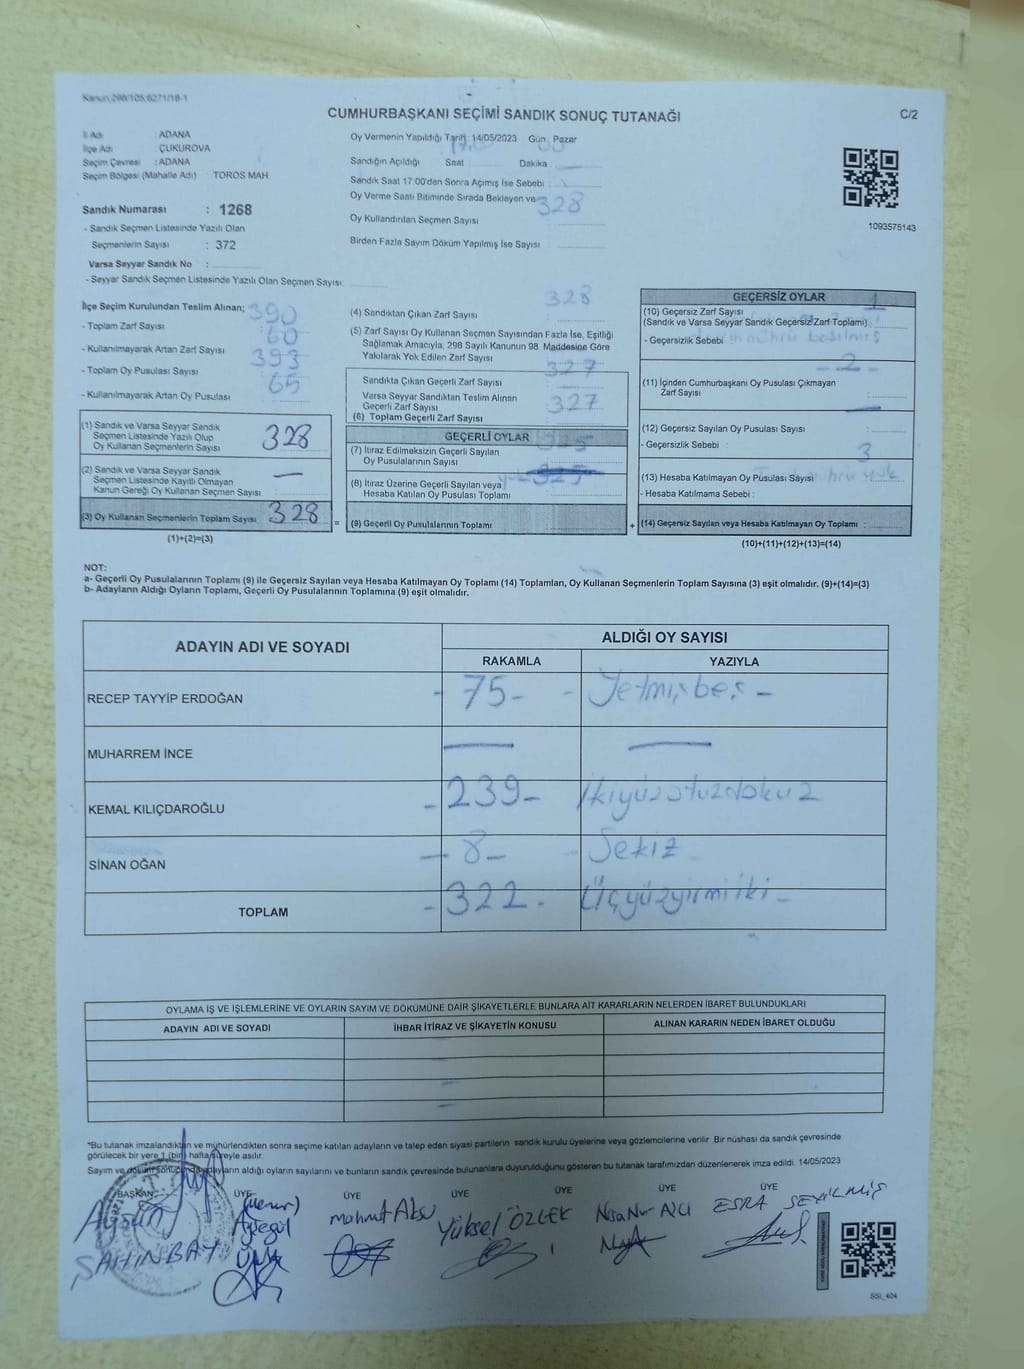 Kanun:298/105,6271/18-1
CUMHURBAŞKANI SEÇİMİ SANDIK SONUÇ TUTANAĞI
C/2
İl Adı : ADANA
İlçe Adı : ÇUKUROVA
Seçim Çevresi : ADANA
Seçim Bölgesi (Mahalle Adı) TOROS MAH
Sandık Numarası : 1268
- Sandık Seçmen Listesinde Yazılı Olan
Seçmenlerin Sayısı : 372
Varsa Seyyar Sandık No :
- Seyyar Sandık Seçmen Listesinde Yazılı Olan Seçmen Sayısı:
Oy Vermenin Yapıldığı Tarih 14/05/2023 Gün Pazar
Sandığın Açıldığı Saat Dakika
Sandık Saat 17:00'den Sonra Açımış İse Sebebi :
Oy Verme Saati Bitiminde Sırada Bekleyen ve 328
Oy Kullandırılan Seçmen Sayısı
Birden Fazla Sayım Döküm Yapılmış İse Sayısı
1093575143
İlçe Seçim Kurulundan Teslim Alınan; 390
- Toplam Zarf Sayısı
60
- Kullanılmayarak Artan Zarf Sayısı
393
- Toplam Oy Pusulası Sayısı
65
- Kullanılmayarak Artan Oy Pusulası
(1) Sandık ve Varsa Seyyar Sandık
Seçmen Listesinde Yazılı Olup
Oy Kullanan Seçmenlerin Sayısı 328
(2) Sandık ve Varsa Seyyar Sandık
Seçmen Listesinde Kayıtlı Olmayan
Kanun Gereği Oy Kullanan Seçmen Sayısı : —
(3) Oy Kullanan Seçmenlerin Toplam Sayısı 328
(1)+(2)=(3)
328
(4) Sandıktan Çıkan Zarf Sayısı
(5) Zarf Sayısı Oy Kullanan Seçmen Sayısından Fazla İse, Eşitliği
Sağlamak Amacıyla, 298 Sayılı Kanunun 98. Maddesine Göre
Yakılarak Yok Edilen Zarf Sayısı
327
Sandıkta Çıkan Geçerli Zarf Sayısı
Varsa Seyyar Sandıktan Teslim Alınan
Geçerli Zarf Sayısı 327
(6) Toplam Geçerli Zarf Sayısı
=
GEÇERLİ OYLAR
(7) İtiraz Edilmeksizin Geçerli Sayılan
Oy Pusulalarının Sayısı
(8) İtiraz Üzerine Geçerli Sayılan veya
Hesaba Katılan Oy Pusulası Toplamı
(9) Geçerli Oy Pusulalarının Toplamı
+
GEÇERSİZ OYLAR
1
(10) Geçersiz Zarf Sayısı
(Sandık ve Varsa Seyyar Sandık Geçersiz Zarf Toplamı) :
- Geçersizlik Sebebi
- 2 -
(11) İçinden Cumhurbaşkanı Oy Pusulası Çıkmayan
Zarf Sayısı :
(12) Geçersiz Sayılan Oy Pusulası Sayısı :
- Geçersizlik Sebebi :
3
(13) Hesaba Katılmayan Oy Pusulası Sayısı
- Hesaba Katılmama Sebebi :
(14) Geçersiz Sayılan veya Hesaba Katılmayan Oy Toplamı :
(10)+(11)+(12)+(13)=(14)
NOT:
a- Geçerli Oy Pusulalarının Toplamı (9) ile Geçersiz Sayılan veya Hesaba Katılmayan Oy Toplamı (14) Toplamları, Oy Kullanan Seçmenlerin Toplam Sayısına (3) eşit olmalıdır. (9)+(14)=(3)
b- Adayların Aldığı Oyların Toplamı, Geçerli Oy Pusulalarının Toplamına (9) eşit olmalıdır.
ADAYIN ADI VE SOYADI
ALDIĞI OY SAYISI
RAKAMLA YAZIYLA
RECEP TAYYİP ERDOĞAN - 75 - - Yetmişbeş -
MUHARREM İNCE — —
KEMAL KILIÇDAROĞLU - 239 - İkiyüzotuzdokuz
SİNAN OĞAN - 8 - - Sekiz
TOPLAM - 322 - Üçyüzyirmiiki -
OYLAMA İŞ VE İŞLEMLERİNE VE OYLARIN SAYIM VE DÖKÜMÜNE DAİR ŞİKAYETLERLE BUNLARA AİT KARARLARIN NELERDEN İBARET BULUNDUKLARI
ADAYIN ADI VE SOYADI İHBAR İTİRAZ VE ŞİKAYETİN KONUSU ALINAN KARARIN NEDEN İBARET OLDUĞU
*Bu tutanak imzalandıktan ve mühürlendikten sonra seçime katılan adayların ve talep eden siyasi partilerin sandık kurulu üyelerine veya gözlemcilerine verilir. Bir nüshası da sandık çevresinde
görülecek bir yere 1 (bir) hafta süreyle asılır.
Sayım ve döküm sonucunda adayların aldığı oyların sayılarını ve bunların sandık çevresinde bulunanlara duyurulduğunu gösteren bu tutanak tarafımızdan düzenlenerek imza edildi. 14/05/2023
BAŞKAN ÜYE ÜYE ÜYE ÜYE ÜYE ÜYE
Aysun (Memur) Mahmut Aksu Yüksel ÖZLEK Nisa Nur AVCI ESRA SEVİLMİŞ
ŞAHİNBAY Ayşegül
ÜNAL
SSİ_404